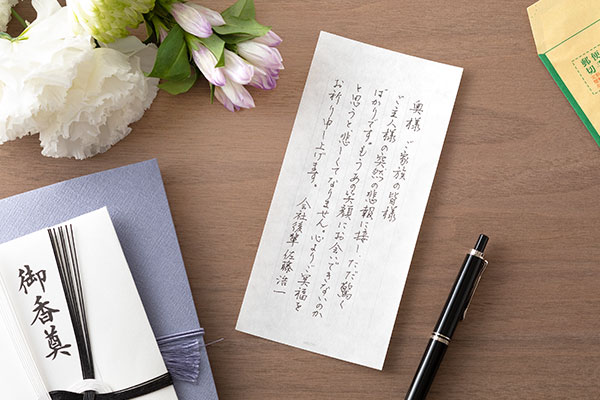 奥様 ご家族の皆様
ご主人様の突然の悲報に接し ただ驚く
ばかりです。もうあの笑顔にお会いできないのか
と思うと悲しくてなりません。心よりご冥福を
お祈り申し上げます。
会社後輩 佐藤浩一
御香奠
郵便
切